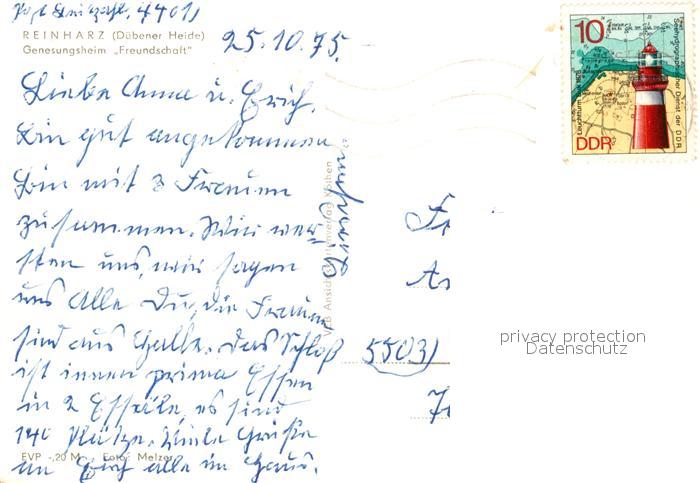 Postleitzahl. 4401)
REINHARZ (Dübener Heide)
Genesungsheim „Freundschaft"
25.10.75.
Liebe Anna u. Erich.
Bin gut angekommen
Bin mit 3 Frauen
zusammen. Wir
uns, wir sagen
uns alle Du, die Frauen
sind aus Halle. Das Schloß
ist innen prima Essen
in 2 Eßsäle, es sind
140 Plätze. Viele Grüße
an Euch alle im Haus.
VEB Ansichtskartenverlag Köthen
EVP -,20 M Foto: Melzer
Fr
An
5503)
10
Seehydrographischer Dienst der DDR
DDR
privacy protection
Datenschutz